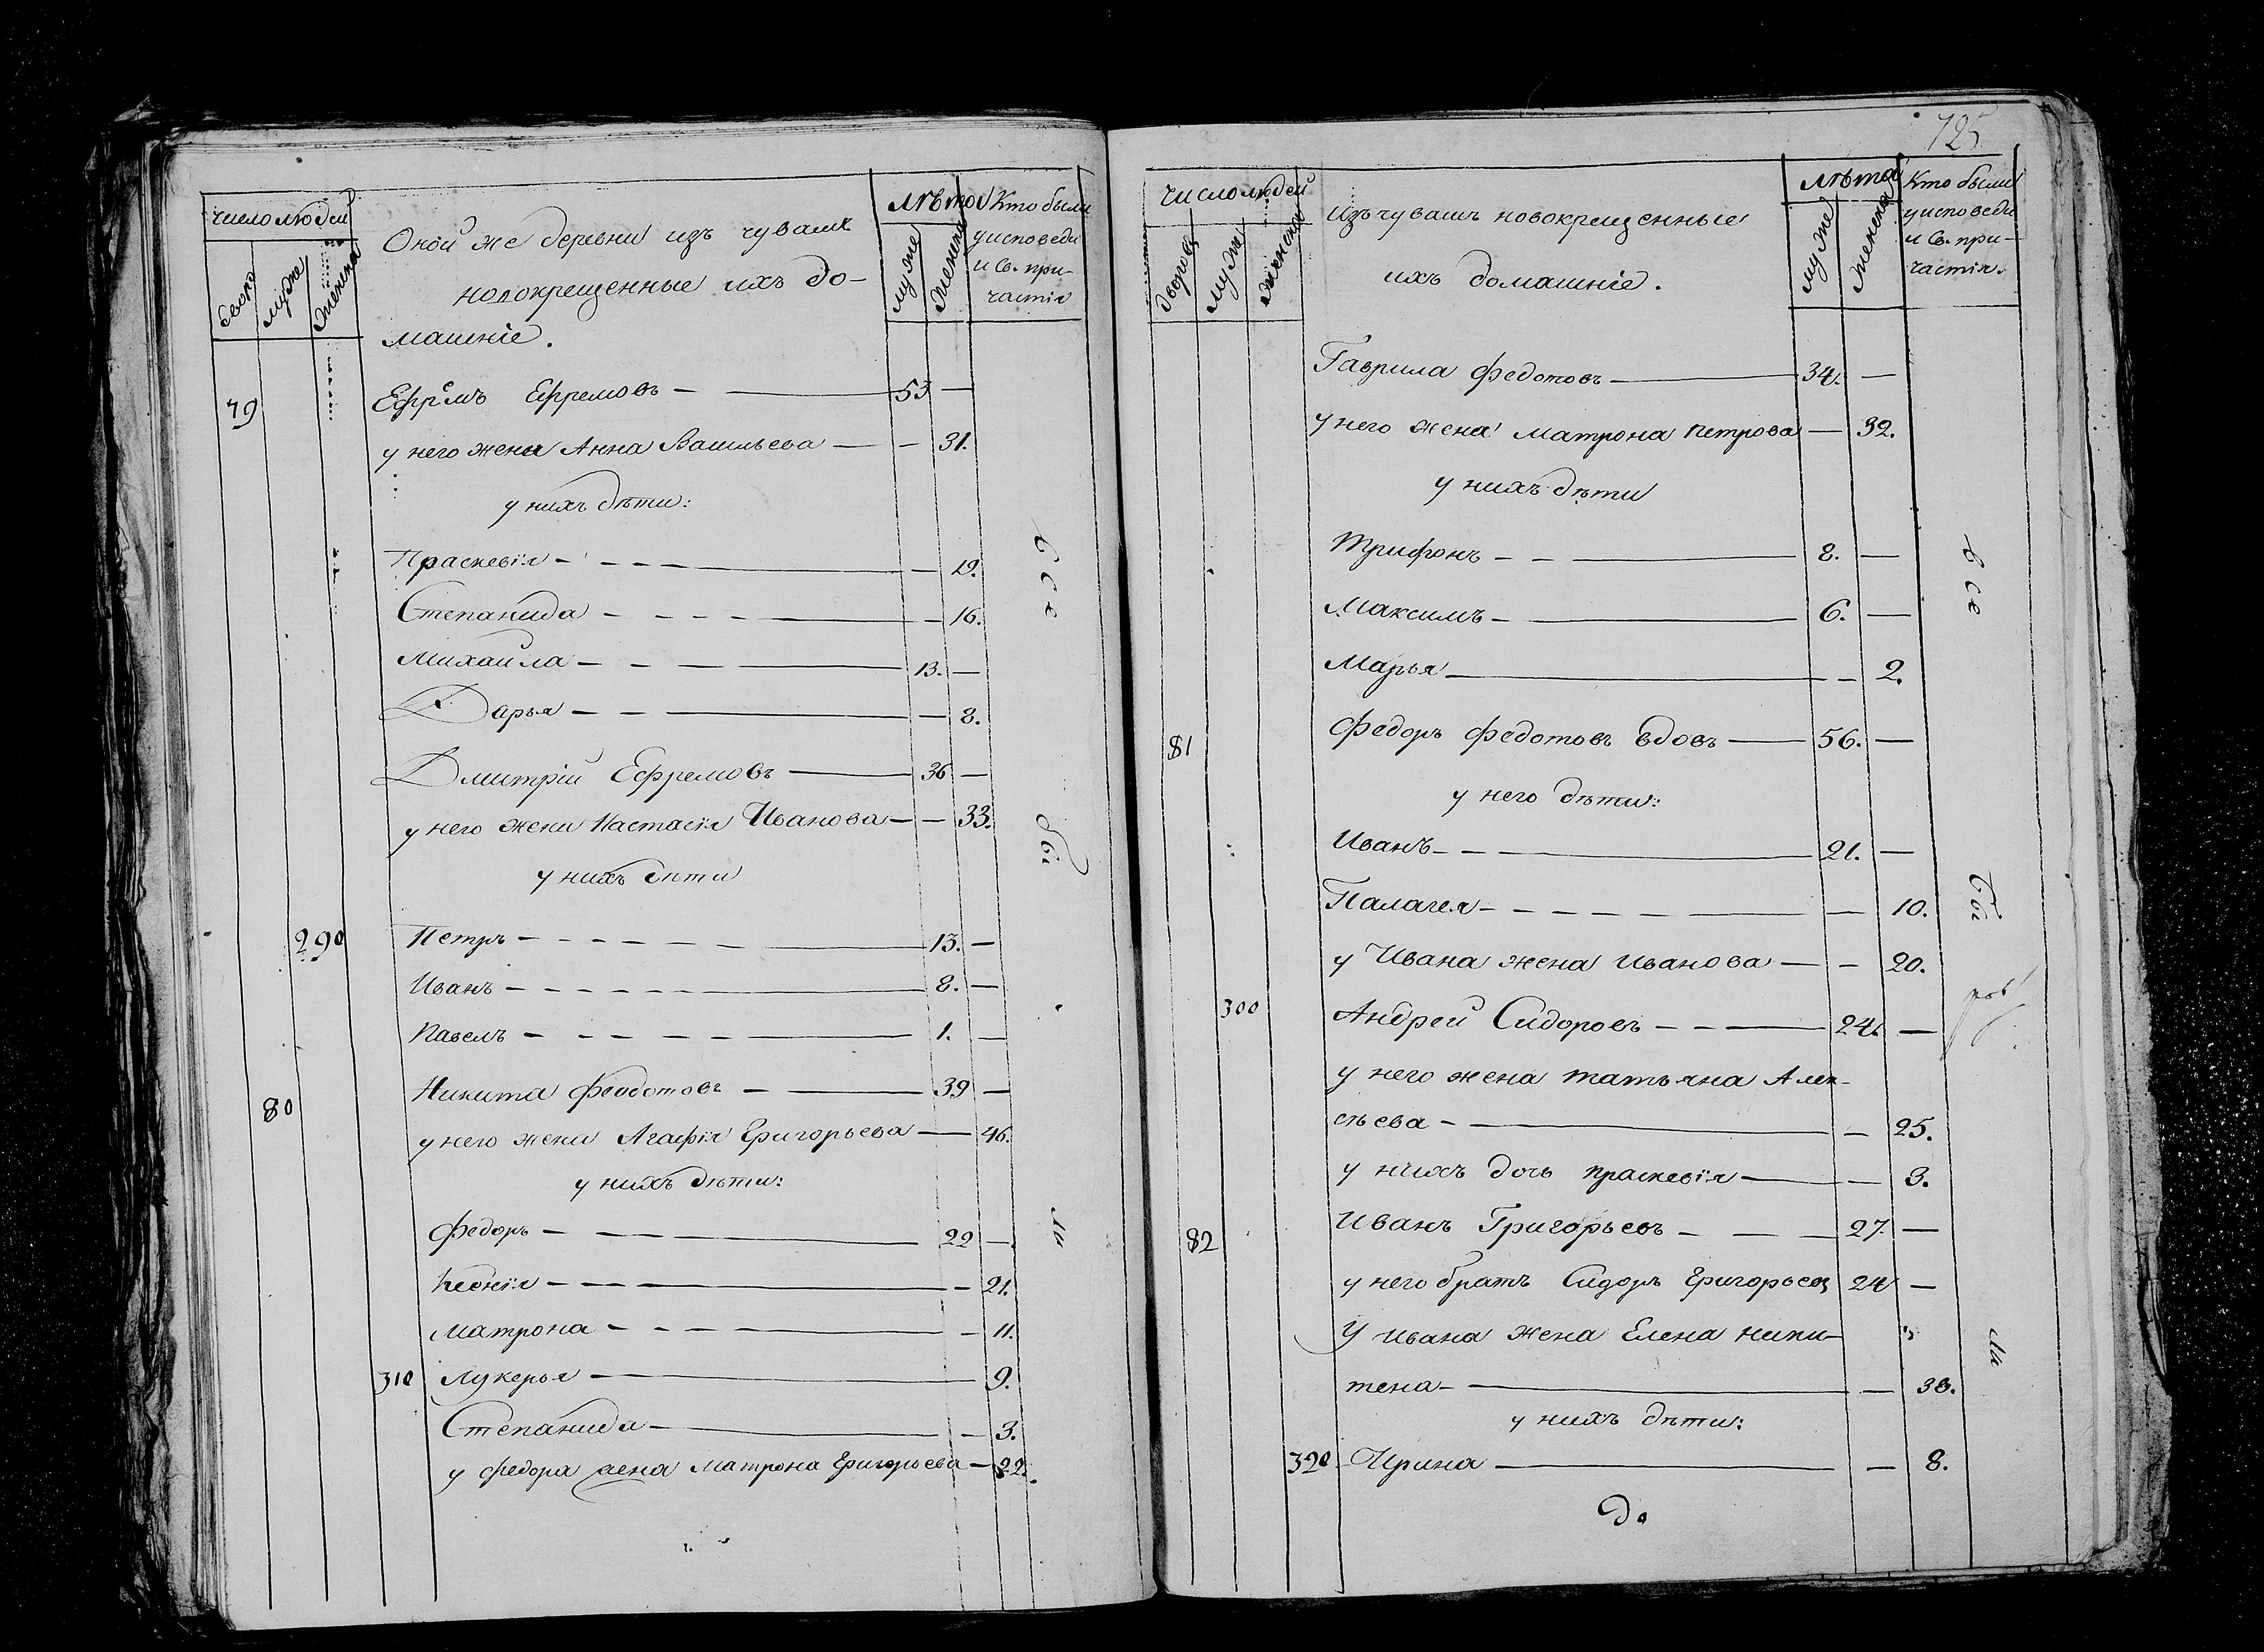 число людей
двор
муже
женска
Оной же деревни изъ чувашъ
новокрещенные ихъ до-
машніе.
лѣта
муже
женска
Кто были
у исповеди
и Св. при-
частія
79 Ефремъ Ефремовъ — 53 —
у него жена Анна Васильева — — 31.
у нихъ дѣти:
Праскевія — — 19.
Степанида — — 16.
Михаила — 13. —
Дарья — — 8.
Дмитрій Ефремовъ — 36 —
у него жена Настасія Иванова — — 33.
у нихъ дѣти
290 Петръ — 13. —
Иванъ — 8. —
Павелъ — 1. —
80 Никита Феодотовъ — 39 —
у него жена Агафія Григорьева — 46.
у нихъ дѣти:
Федоръ — 22 —
Ксенія — — 21.
Матрона — — 11.
310 Лукерья — 9.
Степанида — — 3.
у Федора жена Матрона Григорьева — 22.
все
бы
ли
725
число людей
дворовъ
муже
женска
Изъ чувашъ новокрещенные
ихъ домашніе.
лѣта
муже
женска
Кто были
у исповеди
и Св. при-
частія.
Гаврила Федотовъ — 34. —
у него жена Матрона Петрова — 32.
у нихъ дѣти
Трифонъ — 8. —
Максимъ — 6. —
Марья — — 2.
81 Федоръ Федотовъ вдовъ — 56. —
у него дѣти:
Иванъ — 21. —
Палагея — — 10.
у Ивана жена Иванова — — 20.
300 Андрей Сидоровъ — 24. —
у него жена Татьяна Алек-
сѣева — — 25.
у нихъ дочь Праскевія — — 3.
82 Иванъ Григорьевъ — 27. —
у него братъ Сидоръ Григорьев 24 —
У Ивана жена Елена Ники-
тена — — 30.
у нихъ дѣти:
320 Ирина — — 8.
до
все
бы
ли